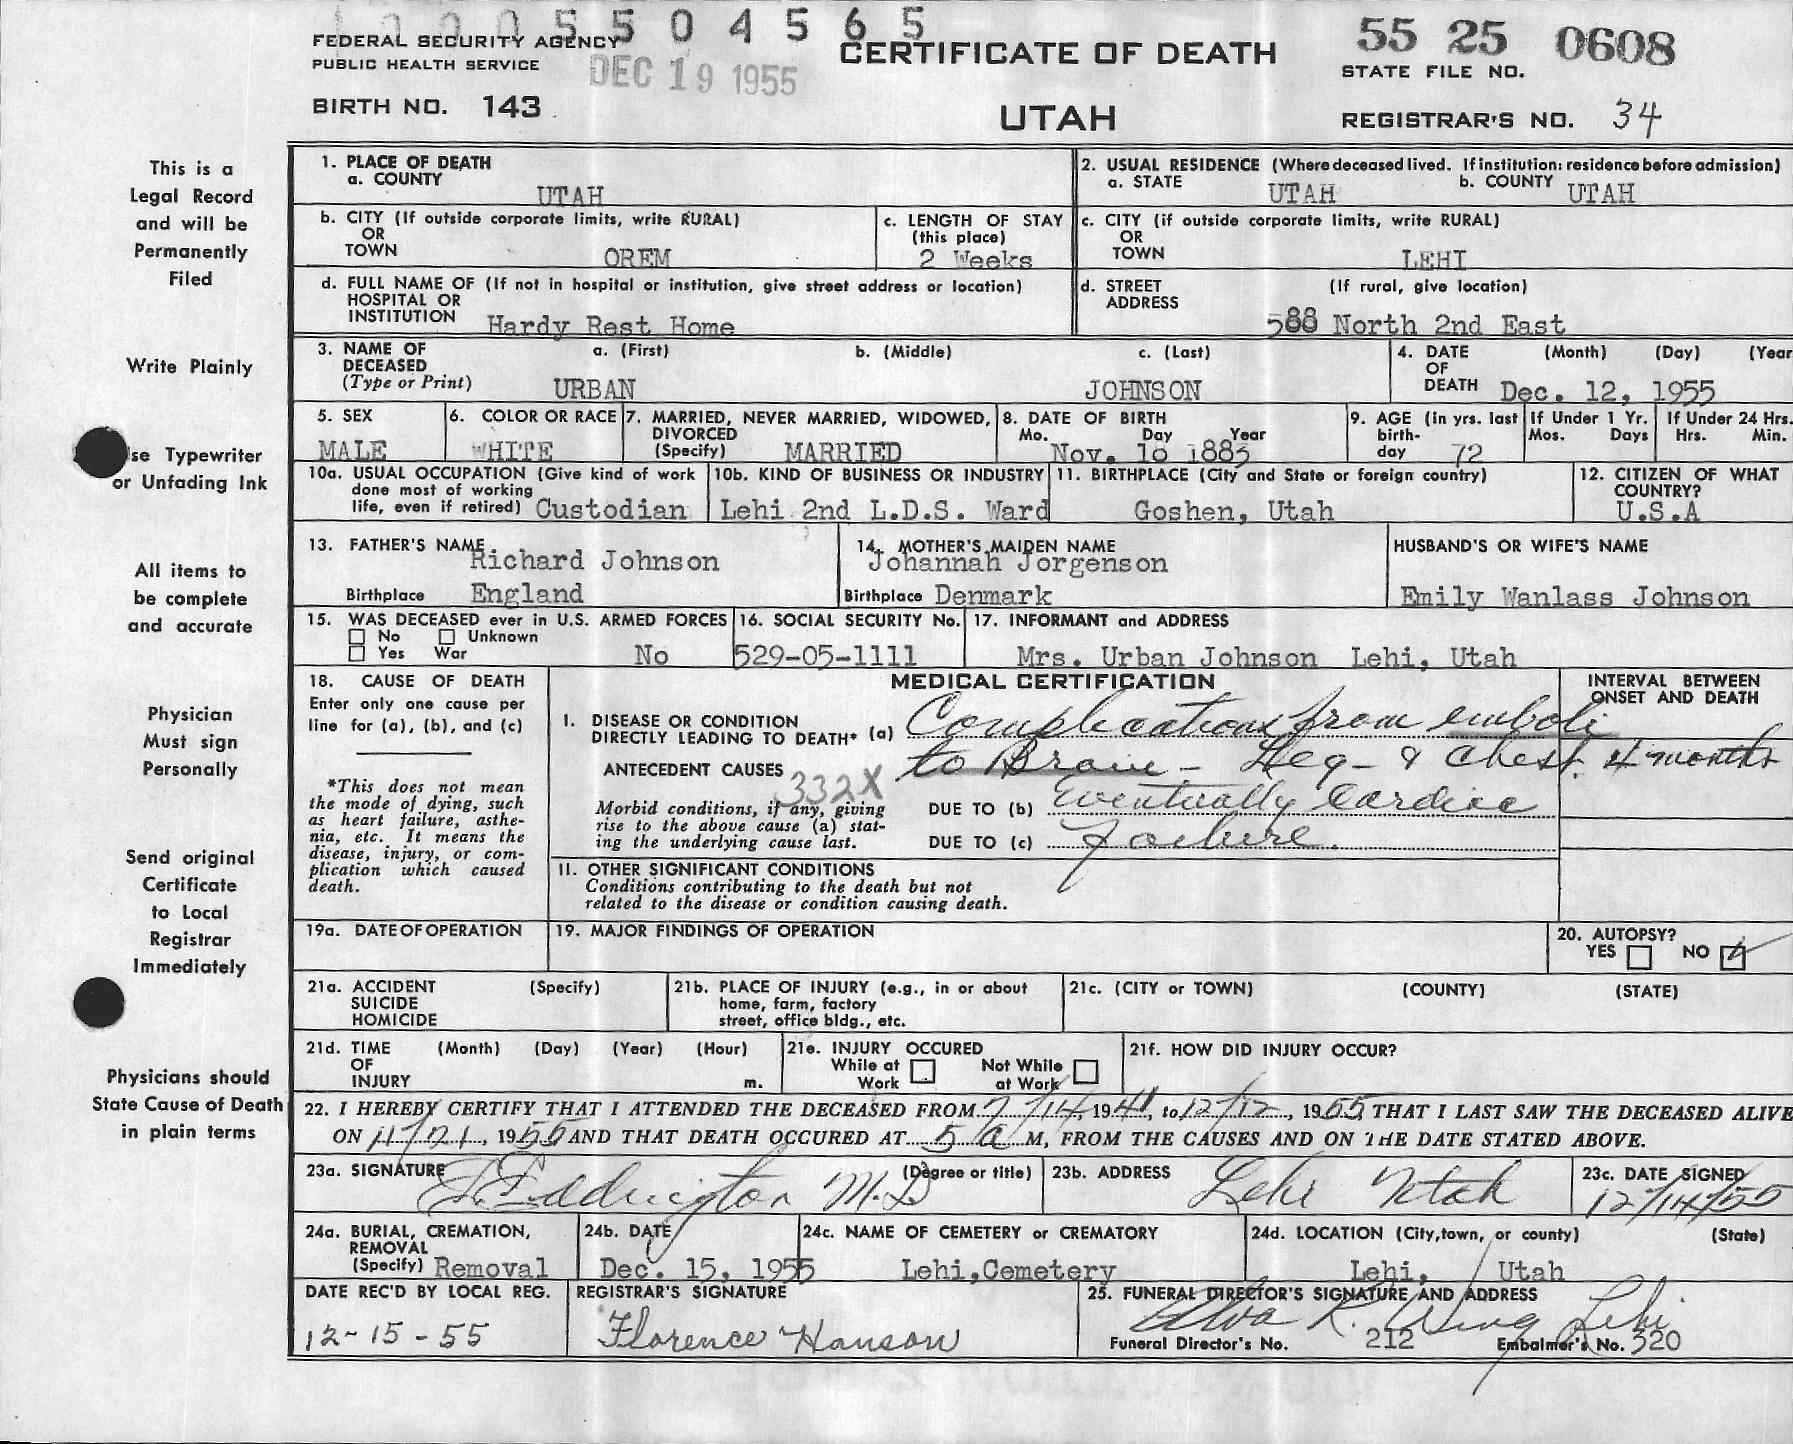 1000550 4565
FEDERAL SECURITY AGENCY
PUBLIC HEALTH SERVICE
DEC 19 1955
CERTIFICATE OF DEATH
55 25 0608
STATE FILE NO.
BIRTH NO. 143
UTAH
REGISTRAR'S NO. 34
This is a
Legal Record
and will be
Permanently
Filed
Write Plainly
se Typewriter
or Unfading Ink
All items to
be complete
and accurate
Physician
Must sign
Personally
Send original
Certificate
to Local
Registrar
Immediately
Physicians should
State Cause of Death
in plain terms
1. PLACE OF DEATH
a. COUNTY
UTAH
2. USUAL RESIDENCE (Where deceased lived. If institution: residence before admission)
a. STATE UTAH b. COUNTY UTAH
b. CITY (If outside corporate limits, write RURAL)
OR
TOWN OREM
c. LENGTH OF STAY
(this place)
2 Weeks
c. CITY (if outside corporate limits, write RURAL)
OR
TOWN LEHI
d. FULL NAME OF (If not in hospital or institution, give street address or location)
HOSPITAL OR
INSTITUTION Hardy Rest Home
d. STREET (If rural, give location)
ADDRESS
588 North 2nd East
3. NAME OF a. (First) b. (Middle) c. (Last)
DECEASED
(Type or Print) URBAN JOHNSON
4. DATE (Month) (Day) (Year
OF
DEATH Dec. 12, 1955
5. SEX
MALE
6. COLOR OR RACE
WHITE
7. MARRIED, NEVER MARRIED, WIDOWED,
DIVORCED
(Specify) MARRIED
8. DATE OF BIRTH
Mo. Day Year
Nov. 10 1883
9. AGE (in yrs. last
birth-
day 72
If Under 1 Yr.
Mos. Days
If Under 24 Hrs.
Hrs. Min.
10a. USUAL OCCUPATION (Give kind of work
done most of working
life, even if retired) Custodian
10b. KIND OF BUSINESS OR INDUSTRY
Lehi 2nd L.D.S. Ward
11. BIRTHPLACE (City and State or foreign country)
Goshen, Utah
12. CITIZEN OF WHAT
COUNTRY?
U.S.A
13. FATHER'S NAME
Richard Johnson
Birthplace England
14. MOTHER'S MAIDEN NAME
Johannah Jorgenson
Birthplace Denmark
HUSBAND'S OR WIFE'S NAME
Emily Wanlass Johnson
15. WAS DECEASED ever in U.S. ARMED FORCES
No Unknown
Yes War No
16. SOCIAL SECURITY No.
529-05-1111
17. INFORMANT and ADDRESS
Mrs. Urban Johnson Lehi, Utah
18. CAUSE OF DEATH
Enter only one cause per
line for (a), (b), and (c)
*This does not mean
the mode of dying, such
as heart failure, asthe-
nia, etc. It means the
disease, injury, or com-
plication which caused
death.
MEDICAL CERTIFICATION
INTERVAL BETWEEN
ONSET AND DEATH
1. DISEASE OR CONDITION
DIRECTLY LEADING TO DEATH* (a) Complications from emboli
to Brain - Leg - & Chest. 4 months
ANTECEDENT CAUSES
332X
Morbid conditions, if any, giving
rise to the above cause (a) stat-
ing the underlying cause last.
DUE TO (b) Eventually Cardiac
DUE TO (c) Failure.
11. OTHER SIGNIFICANT CONDITIONS
Conditions contributing to the death but not
related to the disease or condition causing death.
19a. DATE OF OPERATION
19. MAJOR FINDINGS OF OPERATION
20. AUTOPSY?
YES NO
21a. ACCIDENT (Specify)
SUICIDE
HOMICIDE
21b. PLACE OF INJURY (e.g., in or about
home, farm, factory
street, office bldg., etc.
21c. (CITY or TOWN) (COUNTY) (STATE)
21d. TIME (Month) (Day) (Year) (Hour)
OF
INJURY m.
21e. INJURY OCCURED
While at Not While
Work at Work
21f. HOW DID INJURY OCCUR?
22. I HEREBY CERTIFY THAT I ATTENDED THE DECEASED FROM 7/14, 1941, to 12/12, 1955 THAT I LAST SAW THE DECEASED ALIVE
ON 11/21, 1955 AND THAT DEATH OCCURED AT 5 a M, FROM THE CAUSES AND ON THE DATE STATED ABOVE.
23a. SIGNATURE (Degree or title)
Eddington M.D
23b. ADDRESS
Lehi Utah
23c. DATE SIGNED
12/14/55
24a. BURIAL, CREMATION,
REMOVAL
(Specify) Removal
24b. DATE
Dec. 15, 1955
24c. NAME OF CEMETERY or CREMATORY
Lehi,Cemetery
24d. LOCATION (City,town, or county) (State)
Lehi, Utah
DATE REC'D BY LOCAL REG.
12-15-55
REGISTRAR'S SIGNATURE
Florence Hanson
25. FUNERAL DIRECTOR'S SIGNATURE AND ADDRESS
Alva R. Wing Lehi
Funeral Director's No. 212 Embalmer's No. 320